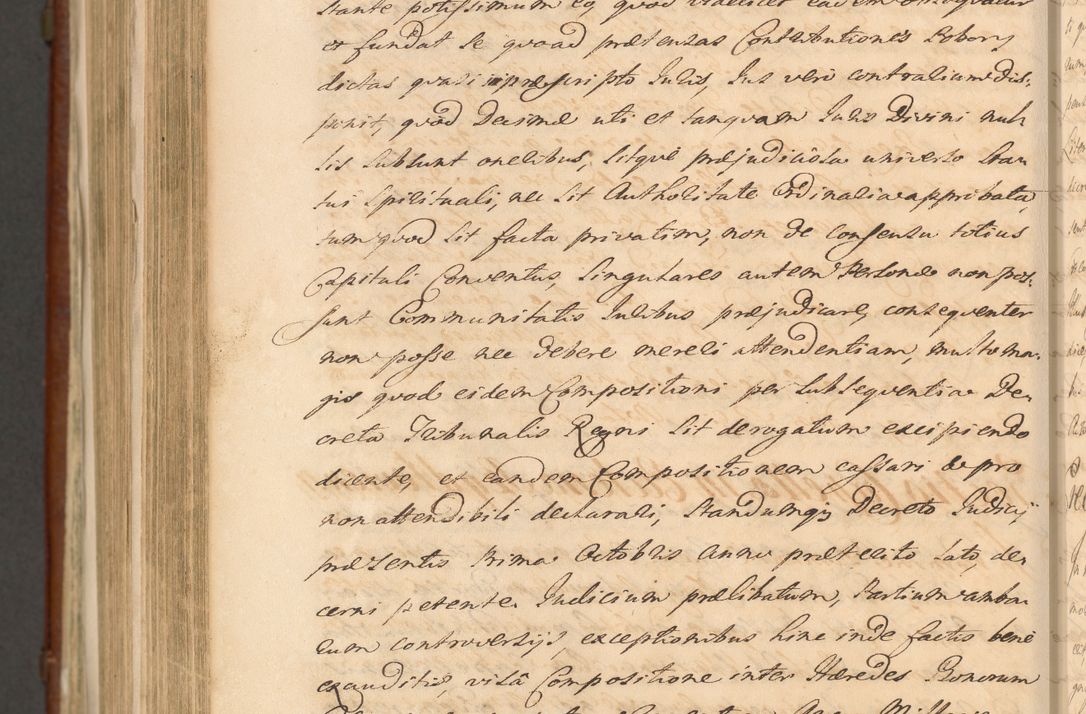 stante potissimum eo, quod videlicet eadem
et fundat se quoad prætensas Contributiones Roborij
dictas quasi in præscripto Juris, Jus vero contrarium dis:
ponit, quod Decimæ uti et tanquam Juris Divini nul:
lis subsunt oneribus, sitquè præjudiciosa universo sta:
tui spirituali, nec sit Authoritate Ordinaria approbata,
tum quod sit facta privatim, non de consensu totius
Capituli Conventus, singulares autem Personæ non pos:
sunt Communitatis Juribus præjudicare, consequenter
non posse nec debere mereri attendentiam, multo ma:
gis quod eidem Compositioni per subsequentia De:
creta Tribunalis Regni sit derogatum excipiendo
dicente, et eandem Compositionem cassari & pro
non attendibili declarari, standumq; Decreto Judicij
præsentis Prima Octobris Anno præterito lato, de:
cerni petente. Judicium prælibatum, Partium amba:
rum controversijs exceptionibus hinc inde factis bene
exauditis, visâ Compositione inter Hæredes Bonorum